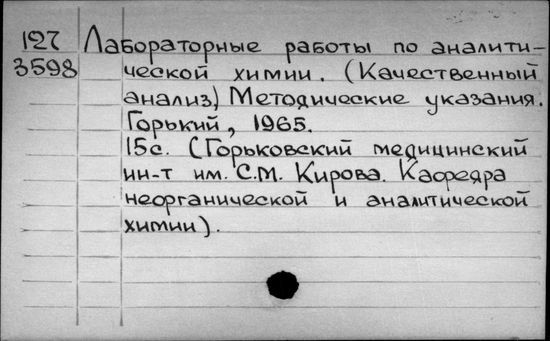 127 Лабораторные работы по аналити-
3598 ческой химии. (Качественный
анализ) Методические указания.
Горький, 1965.
15с. (Горьковский медицинский
ин-т им. С.М. Кирова. Кафедра
неорганической и аналитической
химии).